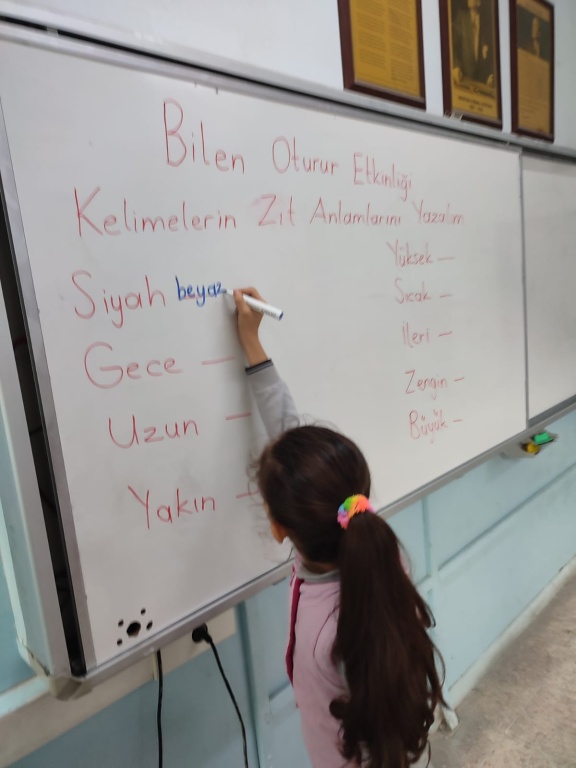 Bilen Oturur Etkinliği
Kelimelerin Zıt Anlamlarını Yazalım
Siyah beyaz
Gece —
Uzun —
Yakın —
Yüksek —
Sıcak —
İleri —
Zengin —
Büyük —